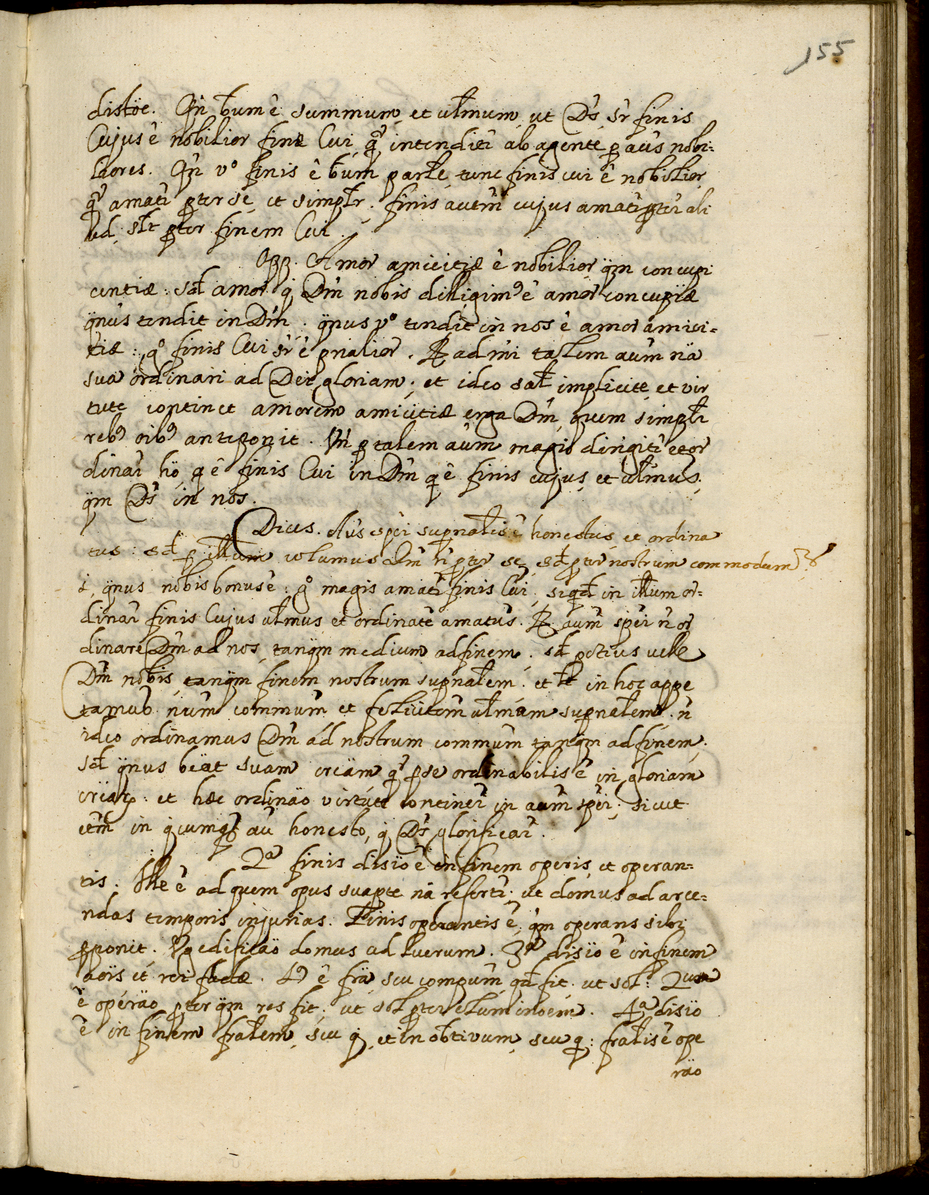 155
distӧe. Qn̄ bum ē summum, et ultmum, ut Ds̄ sr̄ finis
Cujus ē nobilior fine Cui, qa intenditr̄ ab agente p aus nobi-
liores. Qn̄ vo finis ē bum parle, tunc finis cui ē nobilior
qa amatr̄ pter se, et simplr. finis autem cujus amatr̄ pter ali
ud, slt pter finem Cui.
Opp. Amor amicitiæ ē nobilior qm concupi
centiæ: sed amor q Dm̄ nobis diligim9 ē amor concupiæ
qnus tendit in Dm̄. qnus vo tendit in nos ē amor amici-
tiæ: go finis Cui sr̄ ē pnalior. R ad mi talem aum nä
sua ordinari ad Dei gloriam, et ideo salt implicite, et vir
tute continet amorem amicitiæ erga Dm̄, quem simpli
reb9 oib9 anteponit. Vn̄ p talem aum magis dirigitr̄ et or
dinar̄ hö, q ē finis Cui in Dm̄ q ē finis cujus, et ultmus,
qm Ds̄ in nos.
Dices. Aus spei supnalis ē honestus, et ordina
tus: sed p illum volumus Dm̄ n pter se, sed pter nostrum commodum
i, qnus nobis bonus ē: go magis amatr̄ finis Cui, siqd in illum or-
dinar̄ finis Cujus ultmus et ordinate amatus. R aum spei n or
dinare Dm̄ ad nos, tanqm medium ad finem, sed potius velle
Dm̄ nobis, tanqm finem nostrum supnalem. et lt in hoc appe
tamus nrum commum et felicitem ultmam supnalem, n
ideo ordinamus Dm̄ ad nostrum commum tanqm ad finem.
sed qnus beät suam creäm, qa p se ordinabilis ē in gloriam
creäris: et hæc ordinäo virtute continetr̄ in aum spei, sicut
etm in qcumq au honesto, q Ds̄ glorificatr̄.
2a finis disiö ē in finem operis, et operan-
tis. Ille ē ad quem opus suapte nä refertr̄, ut domus ad arce-
ndas temporis injurias. Finis operantis ē, qm operans sibi
pponit. Vg edificaö domus ad lucrum. 3a disiö ē in finem
aöis et rei factæ. ē frä seu compum qd fit, ut sol:
ē operäo, pter qm res fit, ut sol pter illuminoem. 4a disiö
ē in finem fralem, seu q, et in obtivum, seu q: fralis ē ope
räo